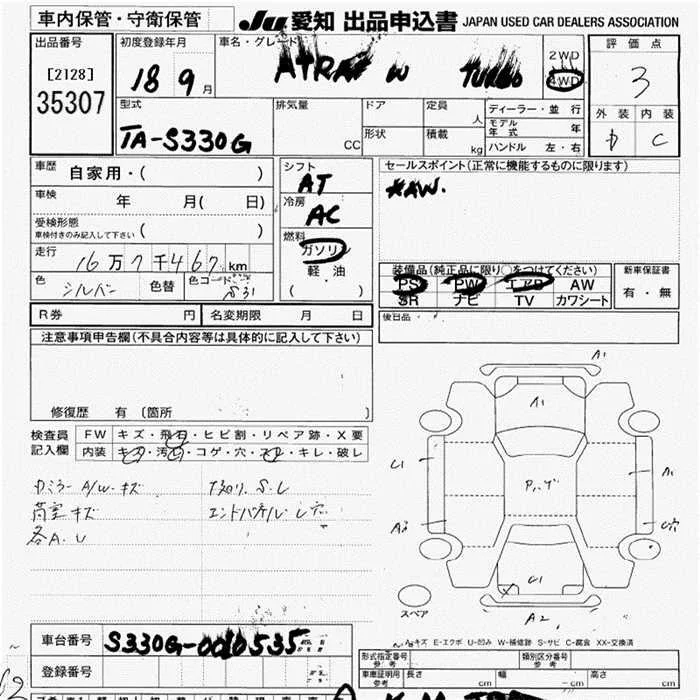 車内保管・守衛保管
Ju 愛知 出品申込書 JAPAN USED CAR DEALERS ASSOCIATION
出品番号
[2128]
35307
初度登録年月
18 9月
車名・グレード
ATRAI W TURBO
2WD
4WD
評価点
3
外装 内装
D C
型式
TA-S330G
排気量
CC
ドア
形状
定員
人
積載
kg
ディーラー・並行
モデル年式 年
ハンドル 左・右
車歴 自家用・( )
車検 年 月( 日)
受検形態
車検付きのみ記入して下さい ( )
走行 16万7千467km
色 シルバー 色替 色コード S31
シフト
AT
冷房
AC
燃料
ガソリン
軽油
( )
セールスポイント(正常に機能するものに限ります)
装備品(純正品に限り○をつけてください)
PS PW エアB AW
SR ナビ TV カワシート
新車保証書
有・無
後日品
R券 円 名変期限 月 日
注意事項申告欄(不具合内容等は具体的に記入して下さい)
修復歴 有 〔箇所 〕
検査員
記入欄
FW キズ・飛石・ヒビ割・リペア跡・X要
内装 キズ・汚れ・コゲ・穴・ キレ・破レ
A/W キズ
荷室キズ
各A.U
A1
A1
U1
A1
A2
スペア
A-キズ E-エクボ U-凹み W-補修跡 S-サビ C-腐食 XX-交換済
車台番号 S330G-0010535
登録番号
形式指定番号 参考
類別区分番号 参考
車庫証明用 参考 長さ cm 幅 cm 高さ cm